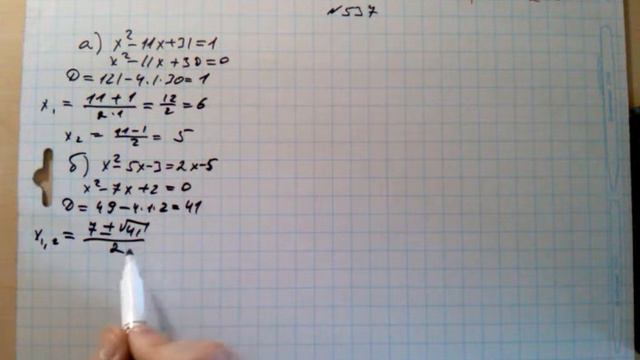 №537
а) x² - 11x + 31 = 1
x² - 11x + 30 = 0
D = 121 - 4·1·30 = 1
x₁ = (11 + 1)/(2·1) = 12/2 = 6
x₂ = (11 - 1)/2 = 5
б) x² - 5x - 3 = 2x - 5
x² - 7x + 2 = 0
D = 49 - 4·1·2 = 41
x₁,₂ = (7 ± √41)/2